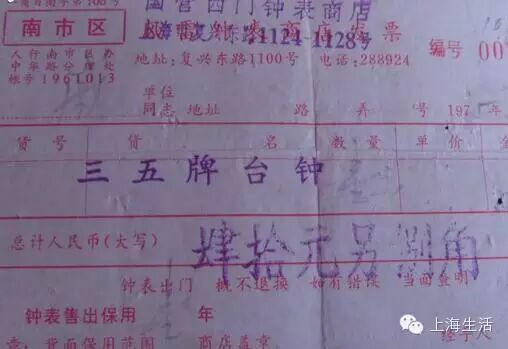 国营西门钟表商店
南市区
上海市复兴东路1124-1128号
发票
编号 00
人行南市区办
中华路分理处
帐号1961013
地址:复兴东路1100号 电话:288924
单位
同志 地址 路 弄 号 197 年
货号 货名 数量 单价 金
三五牌台钟
总计人民币(大写) 肆拾元另捌角
钟表出门 概不退换 如有错误 当面查明
钟表售出保用 年
章:背面保用范围 商店盖章 经手人
上海生活